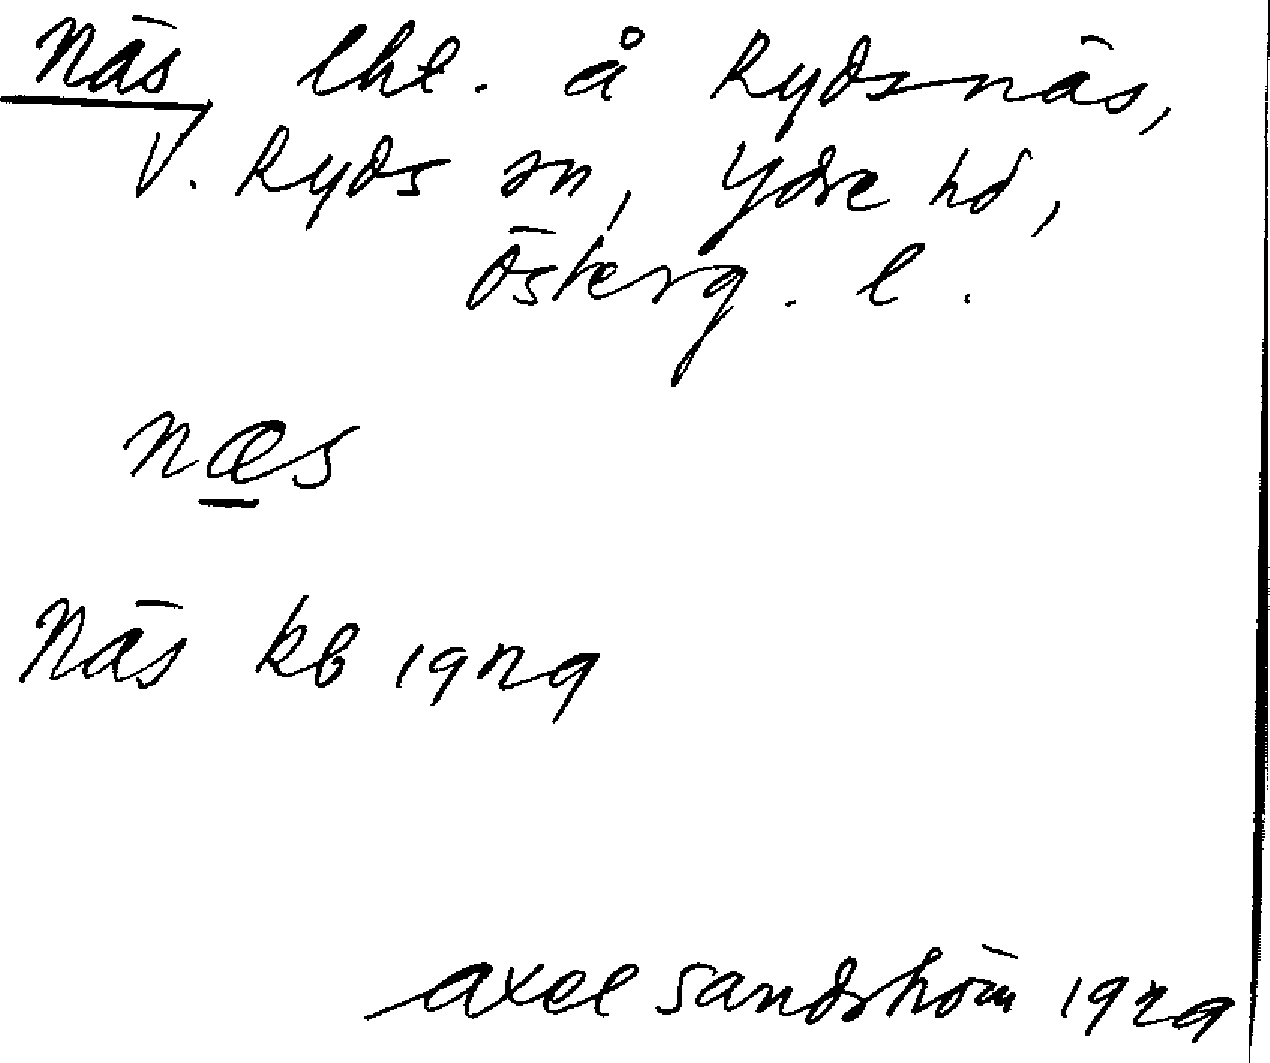 Näs lht. å Rydsnäs,
V. Ryds sn, Ydre hd,
Österg. l.
næs
Näs kb 1929
Axel Sandström 1929